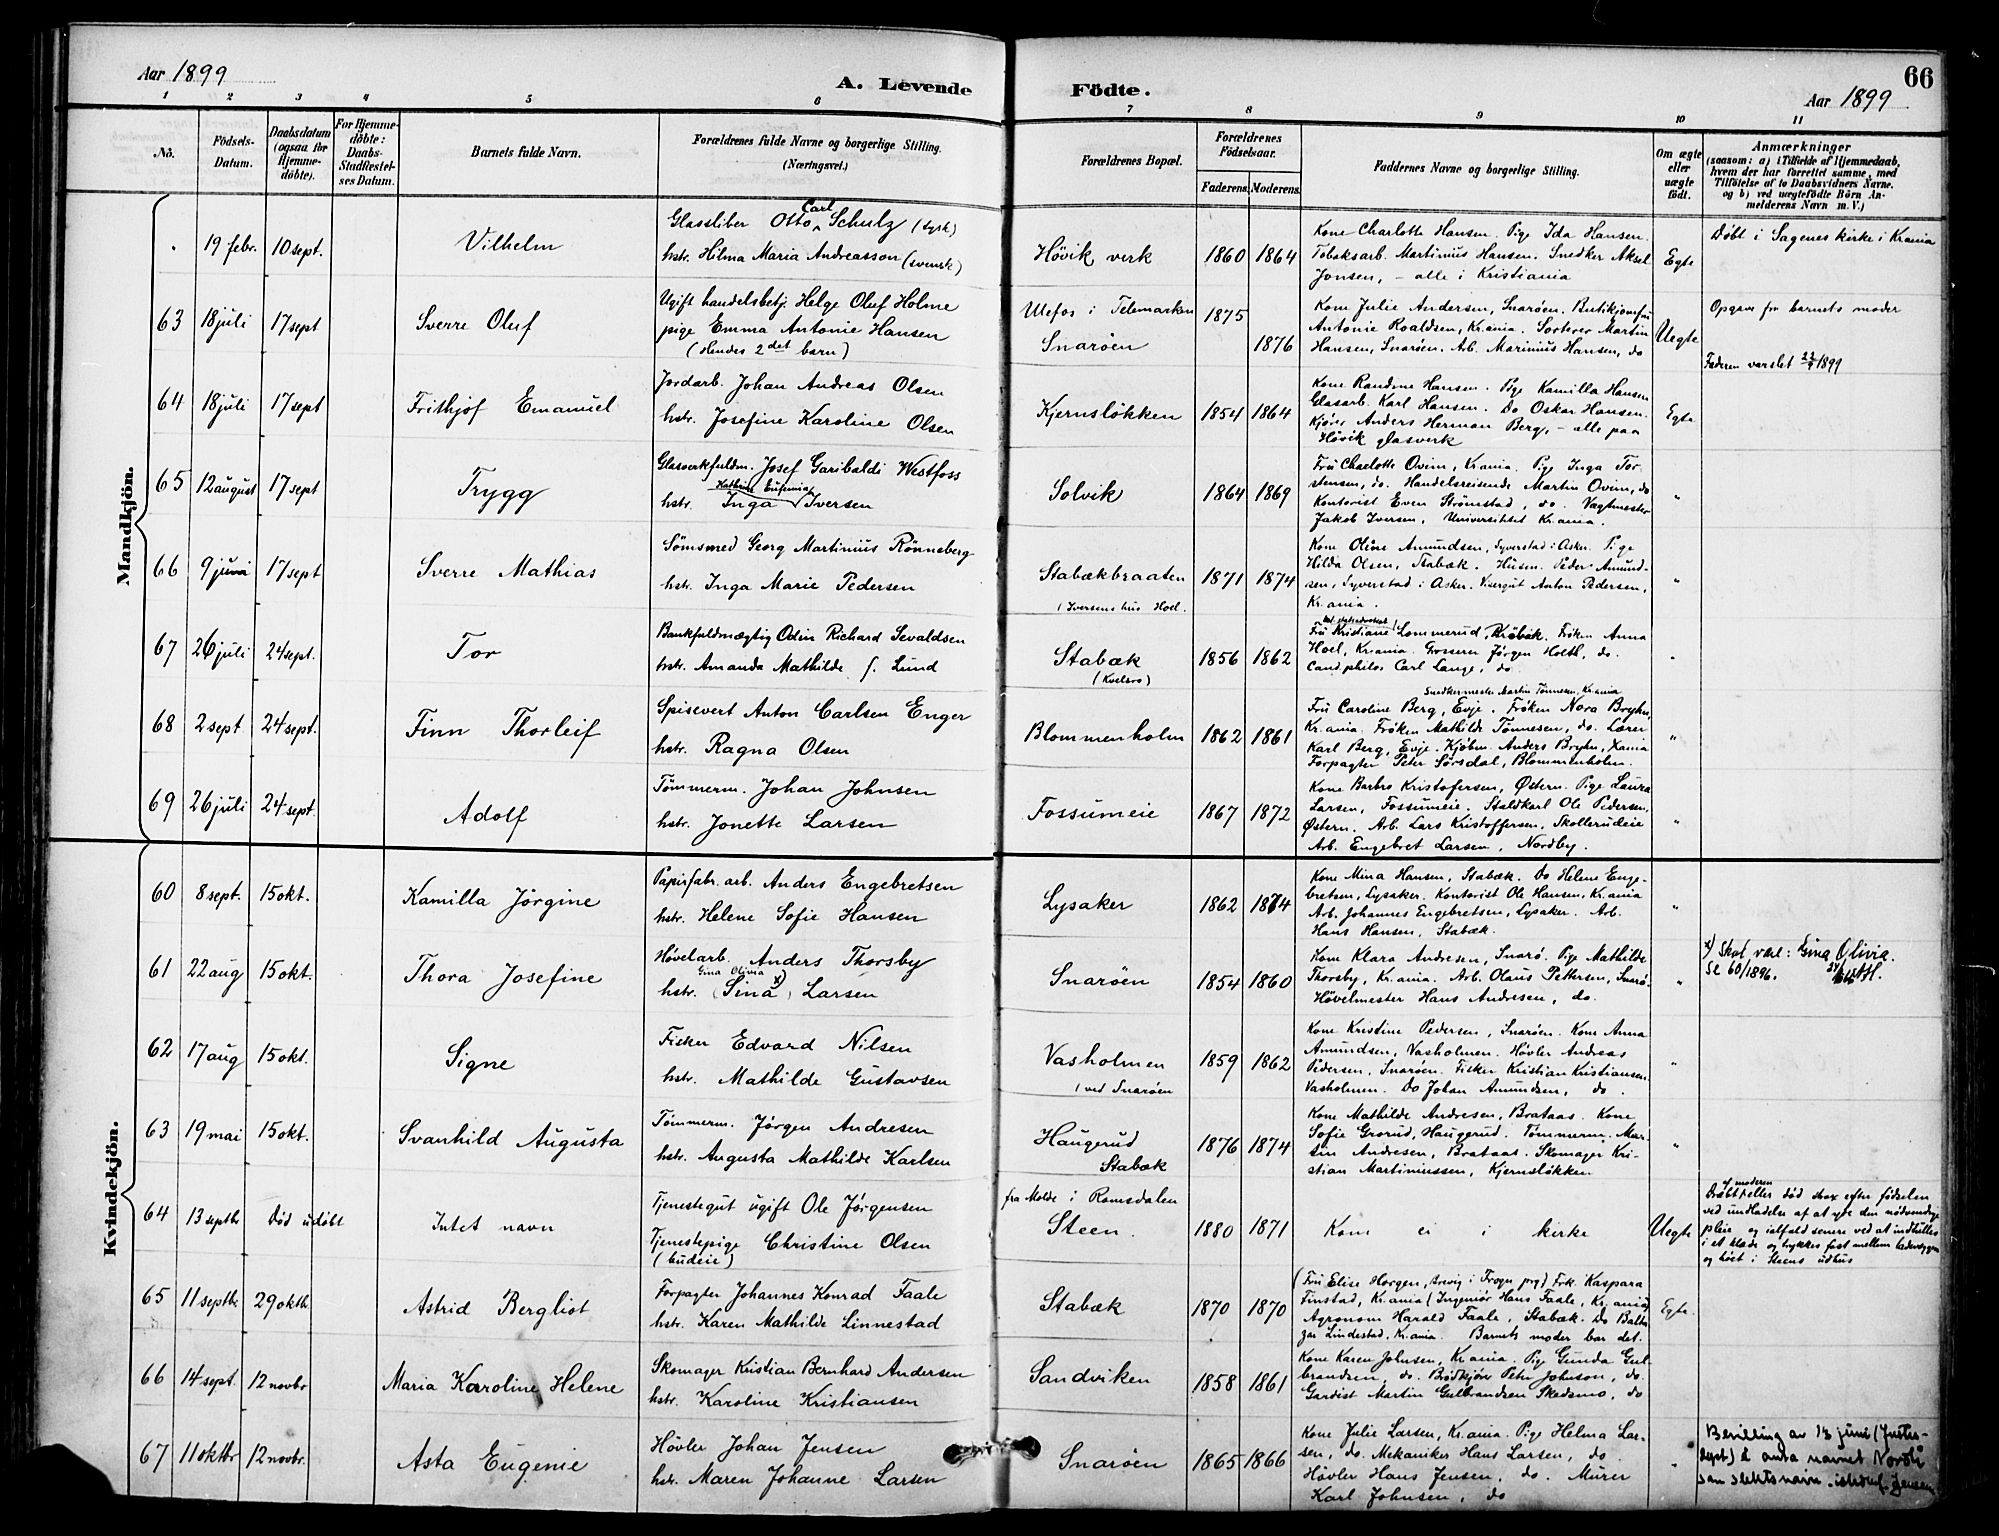 Aar 1899
A. Levende Födte.
66
Aar 1899
1 2 3 4 5 6 7 8 9 10 11
No.
Födsels-Datum.
Daabsdatum (ogsaa for Hjemme-döbte).
For Hjemme-döbte: Daabs-Stadfæstel-ses Datum.
Barnets fulde Navn.
Forældrenes fulde Navne og borgerlige Stilling. (Næringsvei.)
Forældrenes Bopæl.
Forældrenes Födselsaar.
Faderens. Moderens.
Faddernes Navne og borgerlige Stilling.
Om ægte eller uægte födt.
Anmærkninger
(saasom: a) i Tilfælde af Hjemmedaab,
hvem der har forrettet samme, med
Tilföielse af to Daabsvidners Navne.
og b) ved uægtefödte Börn An-
melderens Navn m. V.)
Mandkjön.
19 febr. 10 sept. Vilhelm
Glassliber Otto Carl Schulz (tysk)
hstr. Hilma Maria Andreasson (svensk)
Høvik verk 1860 1864
Kone Charlotte Hansen. Pige Ida Hansen.
Tobaksarb. Martinius Hansen. Snedker Aksel
Jonsen, – alle i Kristiania
Egte
Døbt i Sagenes kirke i Krania
63 18 juli 17 sept Sverre Oluf
Ugift handelsbetj. Helge Oluf Holme
pige Emma Antonie Hansen
(Hendes 2det barn)
Ulefos i Telemarken 1875
Snarøen 1876
Kone Julie Andersen, Snarøen. Butikjomfru
Antonie Roaldsen, Krania. Sorterer Martin
Hansen, Snarøen. Arb. Marinius Hansen, do
Uegte
Opgave fra barnets moder
Faderen varslet 1899
64 18 juli 17 sept Frithjof Emanuel
Jordarb. Johan Andreas Olsen
hstr. Josefine Karoline Olsen
Kjernsløkken 1854 1864
Kone Randine Hansen. Pige Kamilla Hansen
Glasarb. Karl Hansen. Do Oskar Hansen.
Kjører Anders Herman Berg, – alle paa
Høvik glasverk
Egte
65 12 august 17 sept Trygg
Glasverkfuldm. Josef Garibaldi Westfoss
Kathrine Eufemia
hstr. Inga Iversen
Solvik 1864 1869
Fru Charlotte Ovim, Krania. Pige Inga Tor-
stensen, do. Handelsreisende Martin Ovim, do
Kontorist Even Strømstad, do. Vagtmester
Jakob Iversen, Universitetet Krania.
"
66 9 juni 17 sept Sverre Mathias
Sømsmed Georg Martinius Rønneberg
hstr. Inga Marie Pedersen
Stabækbraaten 1871 1874
(Iversens hus Hoel.
Kone Oline Amundsen, Syverstad i Asker. Pige
Hilda Olsen, Stabæk. Husm. Peder Amund-
sen, Syverstad i Asker. Visergut Anton Pedersen,
Krania.
"
67 26 juli 24 sept. Tor
Bankfuldmægtig Odin Richard Sevaldsen
hstr. Amanda Mathilde f. Lund
Stabæk 1856 1862
Fru Kristiane Lommerud, Frøken Anna
Hoel, Krania. Grosserer Jørgen Holth, do.
Cand. philos Carl Lange, do
"
68 2 sept 24 sept. Finn Thorleif
Spisevert Anton Carlsen Enger
hstr. Ragna Olsen
Blommenholm 1862 1861
Snedkermester Martin Tønnesen, Krania
Fru Caroline Berg, Evje. Frøken Nora Bryhn,
Krania. Frøken Mathilde Tønnesen, do. Lærer
Karl Berg, Evje. Kjøbm. Anders Bryhn, Xania
Forpagter Peter Sørsdal, Blommenholm.
"
69 26 juli 24 sept. Adolf
Tømmerm. Johan Johnsen
hstr. Jonette Larsen
Fossumeie 1867 1872
Kone Barbro Kristofersen, Østern. Pige Laura
Larsen, Fossumeie. Staldkarl Ole Pedersen,
Østern. Arb. Lars Kristoffersen, Skollerudeie
Arb. Engebret Larsen, Nordby.
"
Kvindekjön.
60 8 sept. 15 okt. Kamilla Jørgine
Papirfabr. arb. Anders Engebretsen
hstr. Helene Sofie Hansen
Lysaker 1862 1864
Kone Mina Hansen, Stabæk. Do Helene Enge-
bretsen, Lysaker. Kontorist Ole Hansen, Krania
Arb. Johannes Engebretsen, Lysaker. Arb.
Hans Hansen, Stabæk.
"
61 22 aug 15 okt. Thora Josefine
Høvelarb. Anders Thorsby
Gina Olivia x)
hstr. (Sina) Larsen
Snarøen 1854 1860
Kone Klara Andresen, Snarø. Pige Mathilde
Thorsby, Krania. Arb. Olaus Pettersen, Snarø.
Høvelmester Hans Andresen, do.
"
x) Skal være: Gina Olivia.
Se 60/1896.
62 17 aug 15 okt. Signe
Fisker Edvard Nilsen
hstr. Mathilde Gustavsen
Vasholmen 1859 1862
(ved Snarøen
Kone Kristine Pedersen, Snarøen. Kone Anna
Amundsen, Vasholmen. Høvler Andreas
Pedersen, Snarøen. Fisker Kristian Kristiansen
Vasholmen. Do Johan Amundsen, do.
"
63 19 mai 15 okt. Svanhild Augusta
Tømmerm. Jørgen Andresen
hstr. Augusta Mathilde Karlsen
Haugerud 1876 1874
Stabæk
Kone Mathilde Andresen, Brataas. Kone
Sofie Grorud, Haugerud. Tømmerm. Mar-
tin Andresen, Brataas. Skomager Kri-
stian Martiniussen, Kjernsløkken
"
64 13 septbr Død udøbt Intet navn
Tjenestegut ugift Ole Jørgensen
Tjenestepige Christine Olsen
(budeie)
fra Molde i Romsdalen
Steen. 1880 1871
Kom ei i kirke
Uegte
af moderen
Dræbt eller død strax efter fødselen
ved undladelse af at yde den nødvendige
pleie og ialfald senere ved at indhylles
i et klæde og trykkes fast mellem
og høet i Steens udhus
65 11 septbr 29 oktbr. Astrid Bergliot
Forpagter Johannes Konrad Faale
hstr. Karen Mathilde Linnestad
Stabæk 1870 1870
(Fru Elise Horgen, i Frogn prg) Frk. Kaspara
Finstad, Krania (Ingeniør Hans Faale, Krania)
Agronom Harald Faale, Stabæk. Do Balt-
zar Lindestad, Krania. Barnets moder bar det.
Egte.
66 14 sept. 12 novbr Maria Karoline Helene
Skomager Kristian Bernhard Andersen
hstr. Karoline Kristiansen
Sandviken 1858 1861
Kone Karen Johnsen, Krania. Pige Gunda Gul-
brandsen, do. Brødkjører Peter Johnson, do.
Gardist Martin Gulbrandsen Skedsmo, do
67 11 oktbr 12 novbr. Asta Eugenie
Høvler Johan Jensen
hstr. Maren Johanne Larsen
Snarøen 1865 1866
Kone Julie Larsen, Krania. Pige Helma Lar-
sen, do. Mekaniker Hans Larsen, do.
Høvler Hans Jensen, do. Murer
Karl Johnsen, do
"
Bevilling av juni (Justis-
dept) å anta navnet Nordli
som slektsnavn. istedenf. Jensen